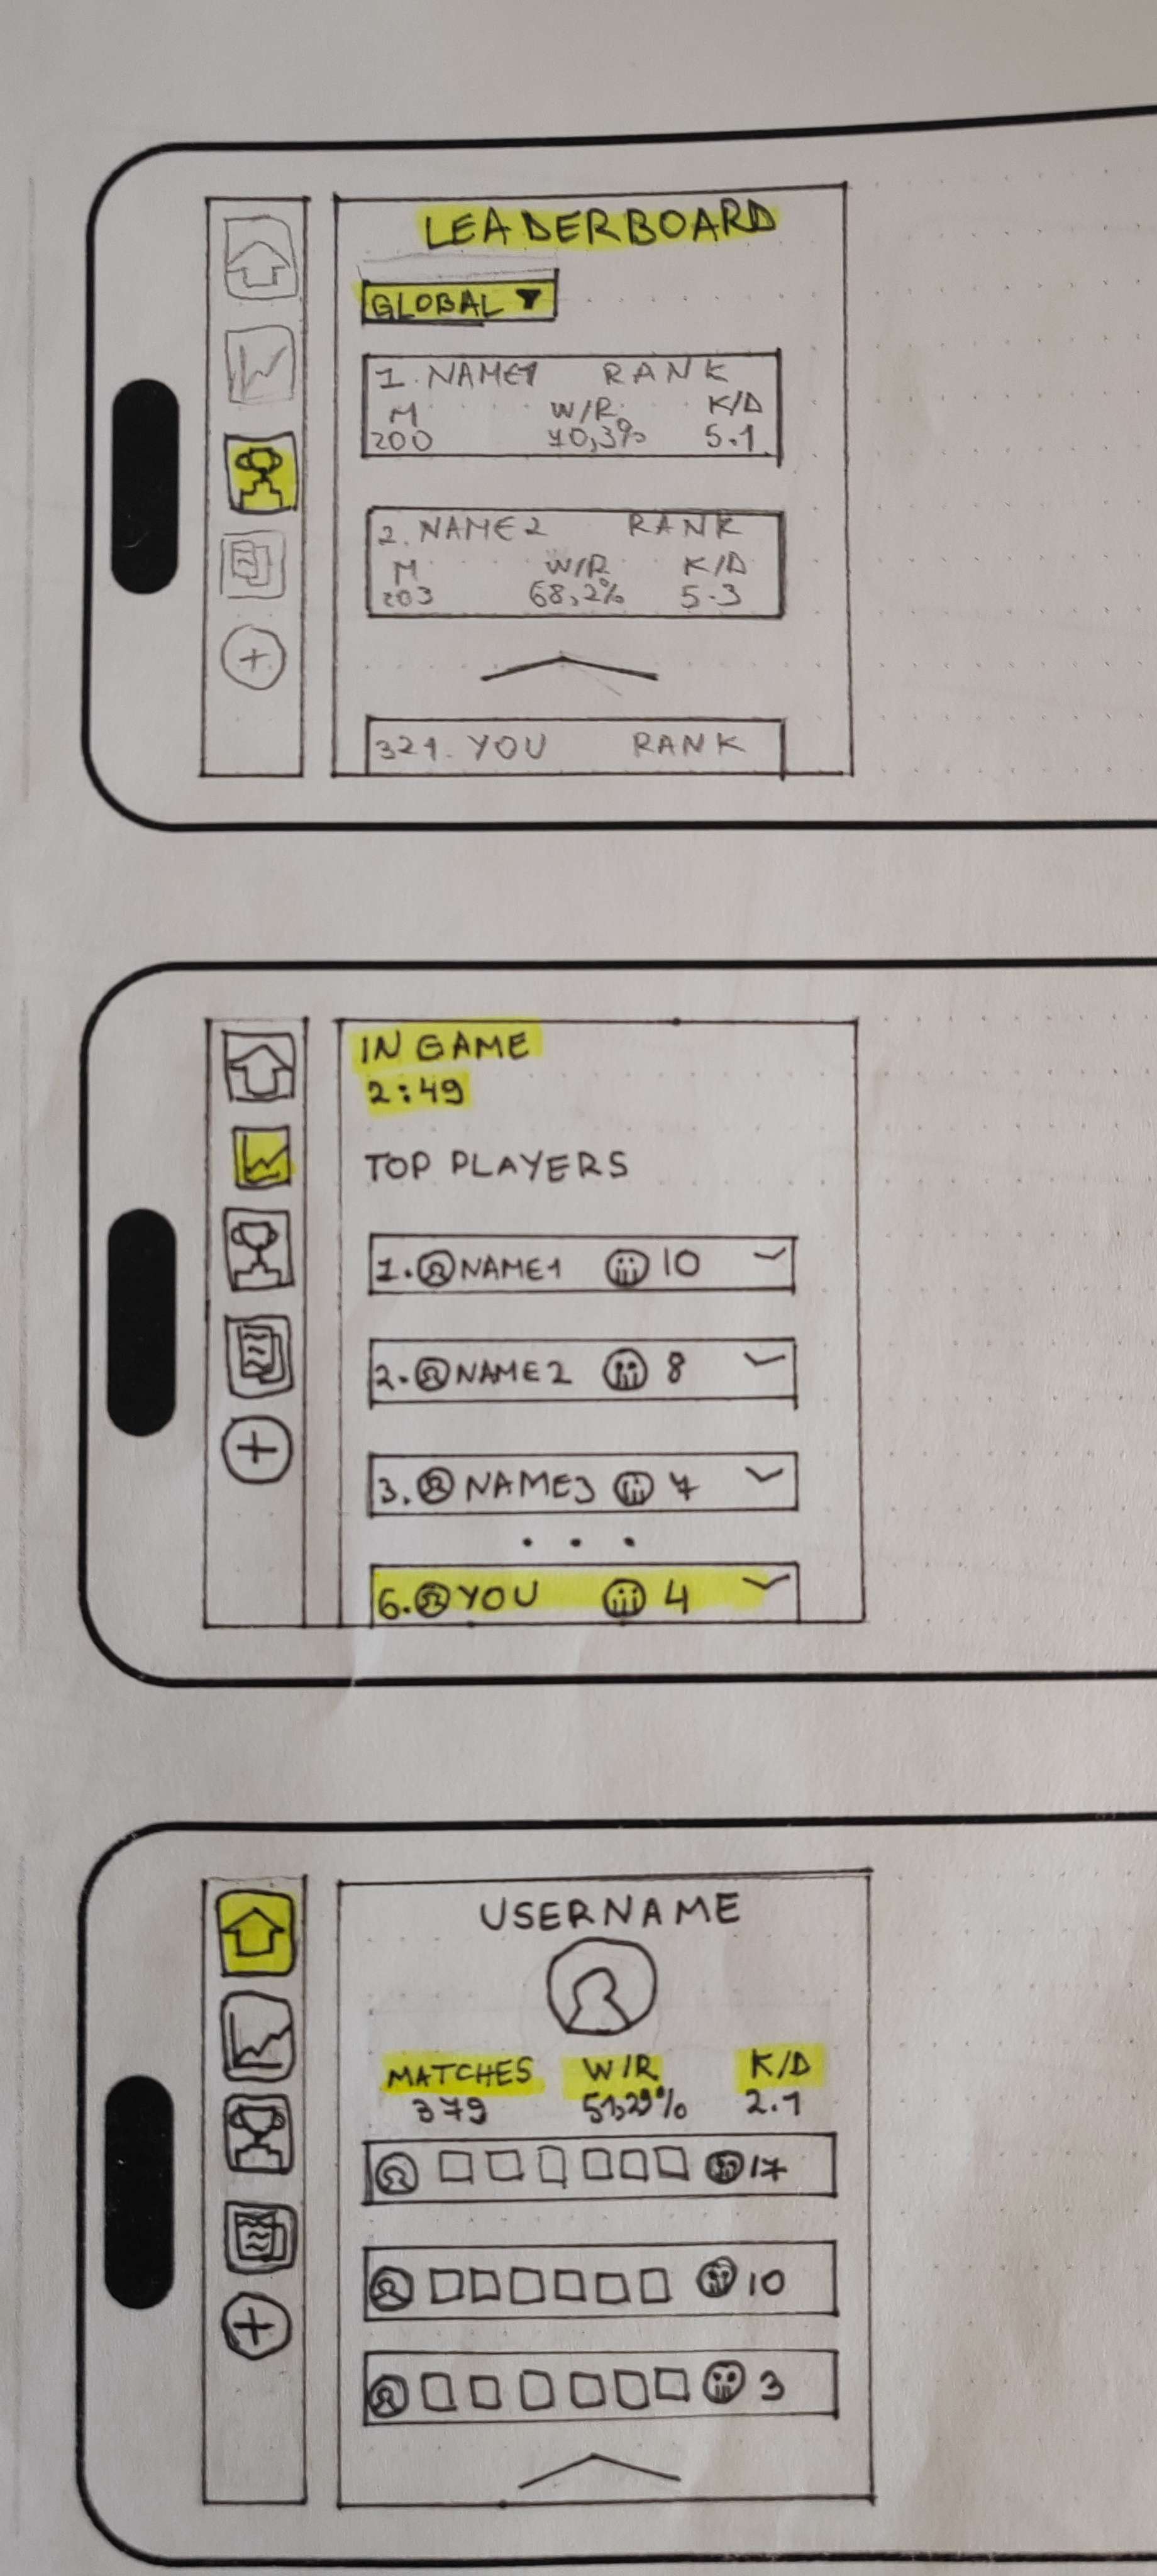 LEADERBOARD
GLOBAL
1. NAME1 RANK
M W/R K/D
200 70,3% 5.1
2. NAME2 RANK
M W/R K/D
203 68,2% 5.3
321. YOU RANK
IN GAME
2:49
TOP PLAYERS
1. NAME1 10
2. NAME2 8
3. NAME3 7
6. YOU 4
USERNAME
MATCHES W/R K/D
379 51,29% 2.1
17
10
3